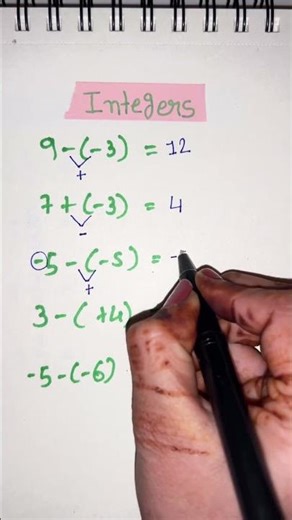 Integers
9-(-3) = 12
+
7+(-3) = 4
-
-5-(-5) = -
+
3-(+4)
-5-(-6)